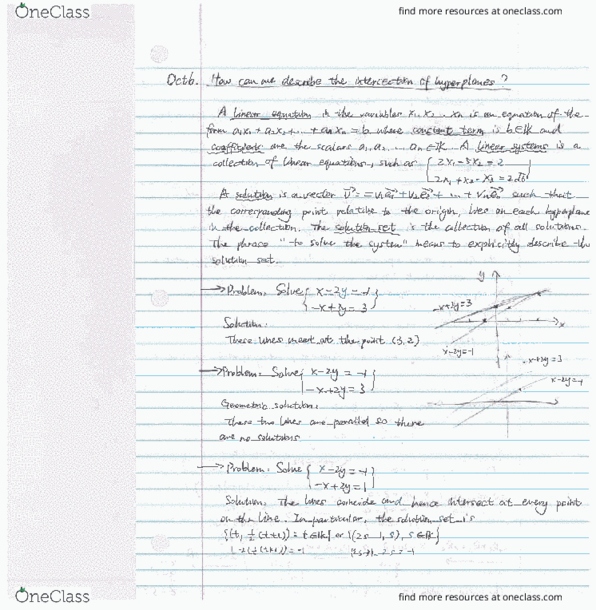 OneClass
find more resources at oneclass.com
Oct 6. How can we describe the intersection of hyperplanes?
A linear equation in the variables x₁, x₂ ... xn is an equation of the
form a₁x₁ + a₂x₂ + ... + anxn = b where constant term is b∈lk and
coefficients are the scalars a₁, a₂, ... an ∈ lk. A linear systems is a
collection of linear equations, such as { 2x₁ - 3x₂ = 2
2x₁ + x₂ - x₃ =
A solution is a vector v⃗ = v₁e₁⃗ + v₂e₂⃗ + ... + vnen⃗ such that
the corresponding point relative to the origin, lies on each hyperplane
in the collection. The solution set is the collection of all solutions.
The phrase "to solve the system" means to explicitly describe the
solution set.
→ Problem. Solve { x - 2y = -1
-x + 3y = 3 }
Solution:
These lines meet at the point (3, 2)
y
-x+3y=3
x
x-2y=-1
→ Problem. Solve { x - 2y = -1
-x + 2y = 3 }
Geometric solution:
These two lines are parallel so there
are no solutions
x-2y=-1
→ Problem. Solve { x - 2y = -1
-x + 2y = 1 }
Solution. The lines coincide and hence intersect at every point
on the line. In particular, the solution set is
{(t, ½(t+1)) : t∈lk} or {(2s-1, s), s∈lk}
OneClass
find more resources at oneclass.com